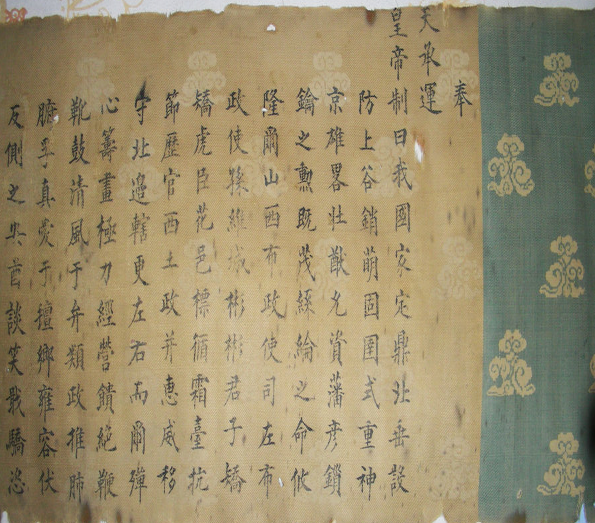 奉
天承運
皇帝制曰我國家定鼎北垂設
防上谷銷萌固圉式重神
京雄畧壯猷允資藩彥鎖
鑰之勳既茂絲綸之命攸
隆爾山西布政使司左布
政使孫維城彬彬君子矯
矯虎臣花邑標循霜臺抗
節歷官西土政并惠威移
守北邊轄更左右而爾殫
心籌畫極力經營饋絕鞭
靴鼓清風于弁類政推肺
膽孚真愛于鄉雍容伏
反側之酋談笑戢驕恣